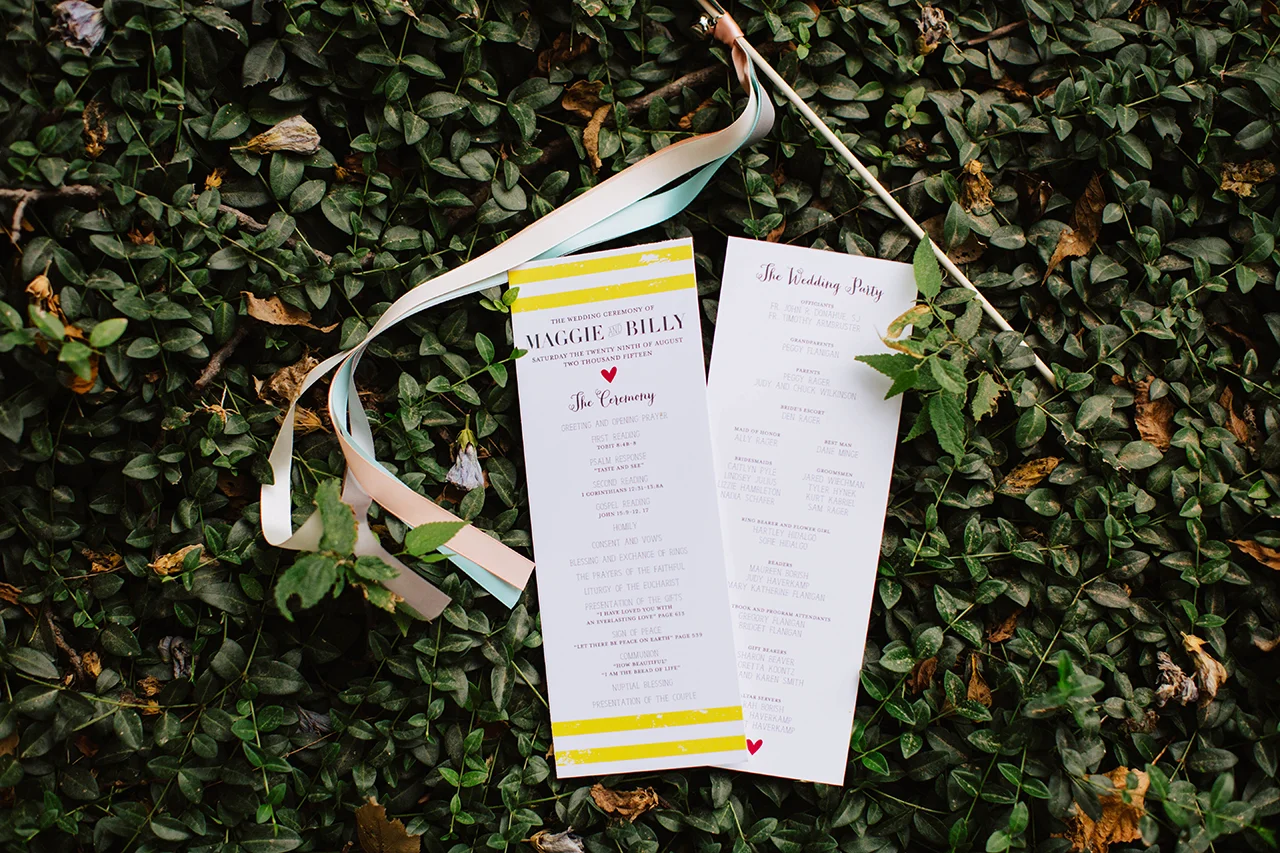 THE WEDDING CEREMONY OF
MAGGIE AND BILLY
SATURDAY THE TWENTY NINTH OF AUGUST
TWO THOUSAND FIFTEEN
The Ceremony
GREETING AND OPENING PRAYER
FIRST READING
TOBIT 8:4B-8
PSALM RESPONSE
"TASTE AND SEE"
SECOND READING
1 CORINTHIANS 12:31-13:8A
GOSPEL READING
JOHN 15:9-12, 17
HOMILY
CONSENT AND VOWS
BLESSING AND EXCHANGE OF RINGS
THE PRAYERS OF THE FAITHFUL
LITURGY OF THE EUCHARIST
PRESENTATION OF THE GIFTS
"I HAVE LOVED YOU WITH
AN EVERLASTING LOVE" PAGE 613
SIGN OF PEACE
"LET THERE BE PEACE ON EARTH" PAGE 539
COMMUNION
"HOW BEAUTIFUL"
"I AM THE BREAD OF LIFE"
NUPTIAL BLESSING
PRESENTATION OF THE COUPLE
The Wedding Party
OFFICIANTS
FR. JOHN R. DONAHUE, SJ
FR. TIMOTHY ARMBRUSTER
GRANDPARENTS
PEGGY FLANIGAN
PARENTS
PEGGY RAGER
JUDY AND CHUCK WILKINSON
BRIDE'S ESCORT
DEN RAGER
MAID OF HONOR
ALLY RAGER
BEST MAN
DANE MINGE
BRIDESMAIDS
CAITLYN PYLE
LINDSEY JULIUS
LIZZIE HAMBLETON
NADIA SCHAFER
GROOMSMEN
JARED WIECHMAN
TYLER HYNEK
KURT KABRIEL
SAM RAGER
RING BEARER AND FLOWER GIRL
HARTLEY HIDALGO
SOFIE HIDALGO
READERS
MAUREEN BORISH
JUDY HAVERKAMP
MARY KATHERINE FLANIGAN
BOOK AND PROGRAM ATTENDANTS
GREGORY FLANIGAN
BRIDGET FLANIGAN
GIFT BEARERS
SHARON
KOONTZ
AND KAREN SMITH
SERVERS
BORISH
HAVERKAMP
HAVERKAMP